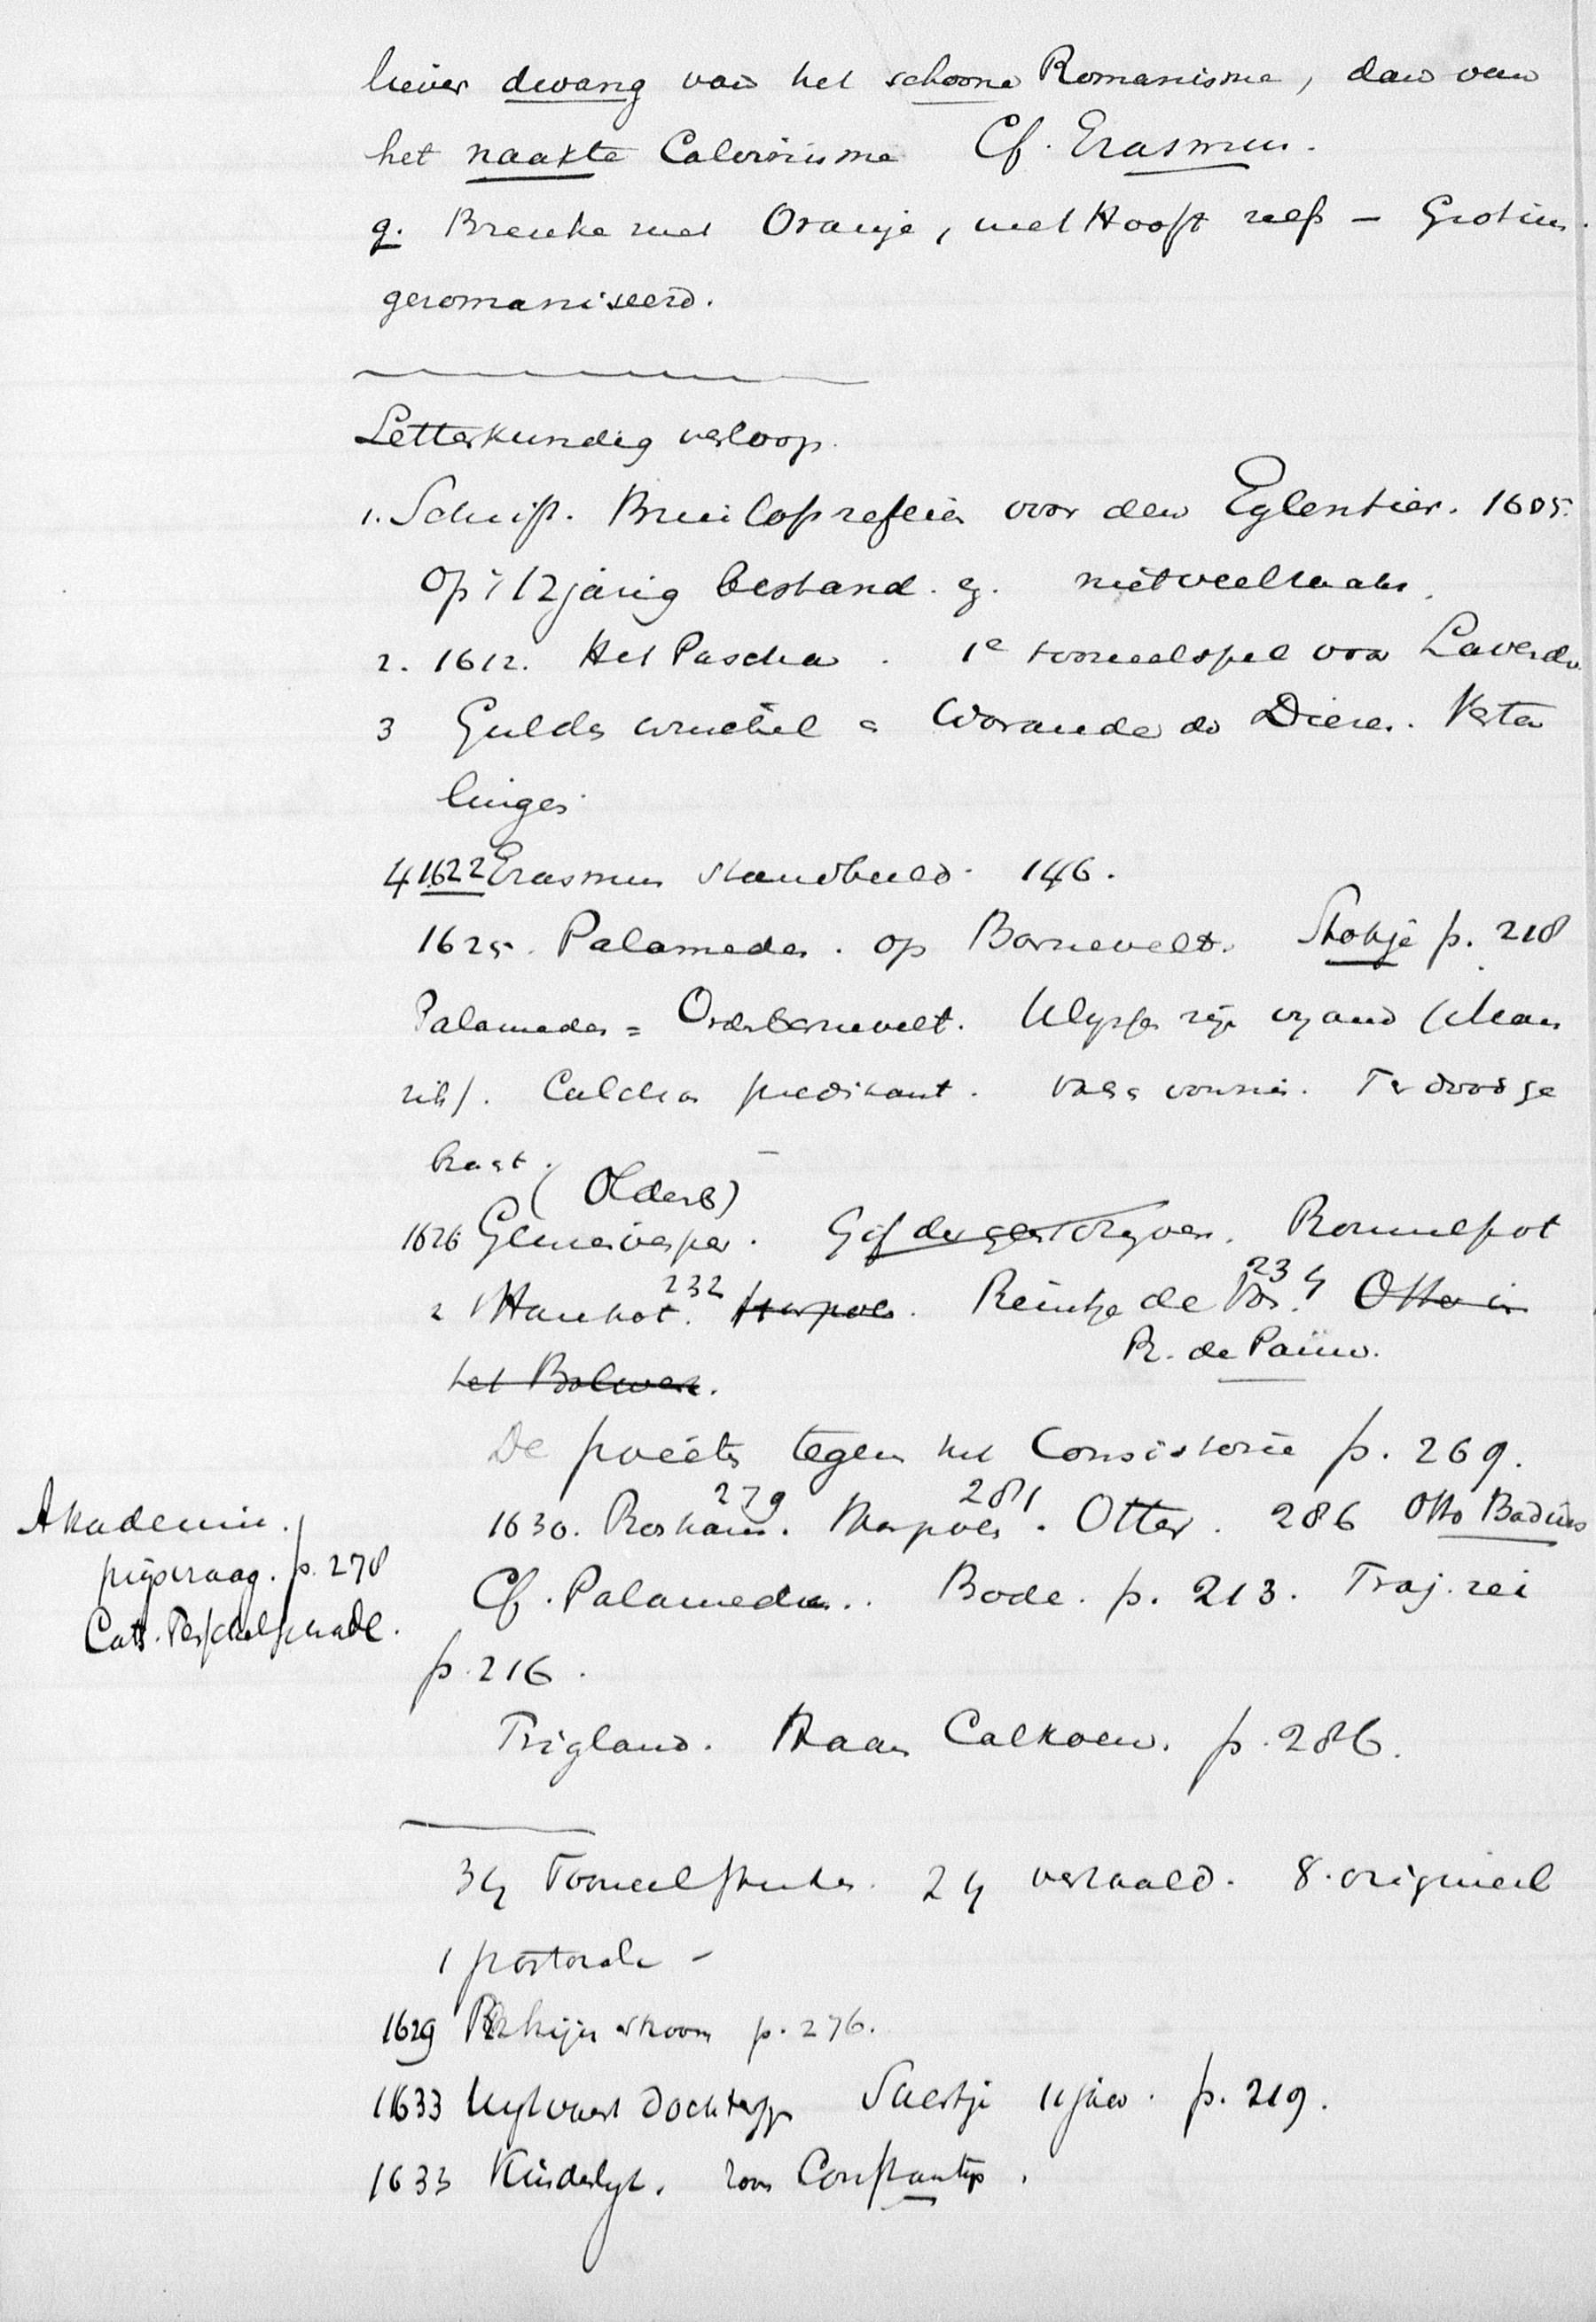 liever dwang van het schoone Romanisme, dan van
het naakte Calvinisme Cf. Erasmus.
g. Breuke met Oranje, met Hooft zelf - Grotius.
geromaniseerd.
Letterkundig verloop.
1. Schrift. Bruilofsrefein voor den Eglentier. 1605.
op 't 12jarig bestand. eg. niet veel zaaks.
2. 1612. Het Pascha. 1e tooneelspel voor Lavendu
3 Gulde winckel = Warande der Dieren. Verta
linges
4 1622 Erasmus standbeeld. 146.
1625. Palamedes. op Barnevelt. Stokje p. 218
Palamedes = Oldebarnevelt. Ulysses zijn vyand (Mau
rits). Calchas predikant. Valsch vonnis. Ter dood ge
bracht.
(Oldenb)
1626 Geuzevesper. Rommelpot
2 v/ Hankot. 232 Harpoen. Reintje de Vos. 234 Otto in
R. de Pauw.
het Bolwerk.
De poëets tegen het Consistorie p. 269.
1630. Roskam. 279 Harpoen. 281 Otter. 286 Otto Badius
Akademie.
prijsvraag. p. 278
Cats. Tesschelschade.
Cf. Palamedes.. Bode. p. 213. Traj. rei
p. 216.
Trigland. Haan Calkoen. p. 286.
34 Tooneelstukken. 24 vertaald. 8. origineel
1 pastorale -
1629 Rhijnstroom p. 276.
1633 Uytvaert dochtertje Saertje 11 jaar. p. 219.
1633 Kinderlyk. zoon Constantijn.